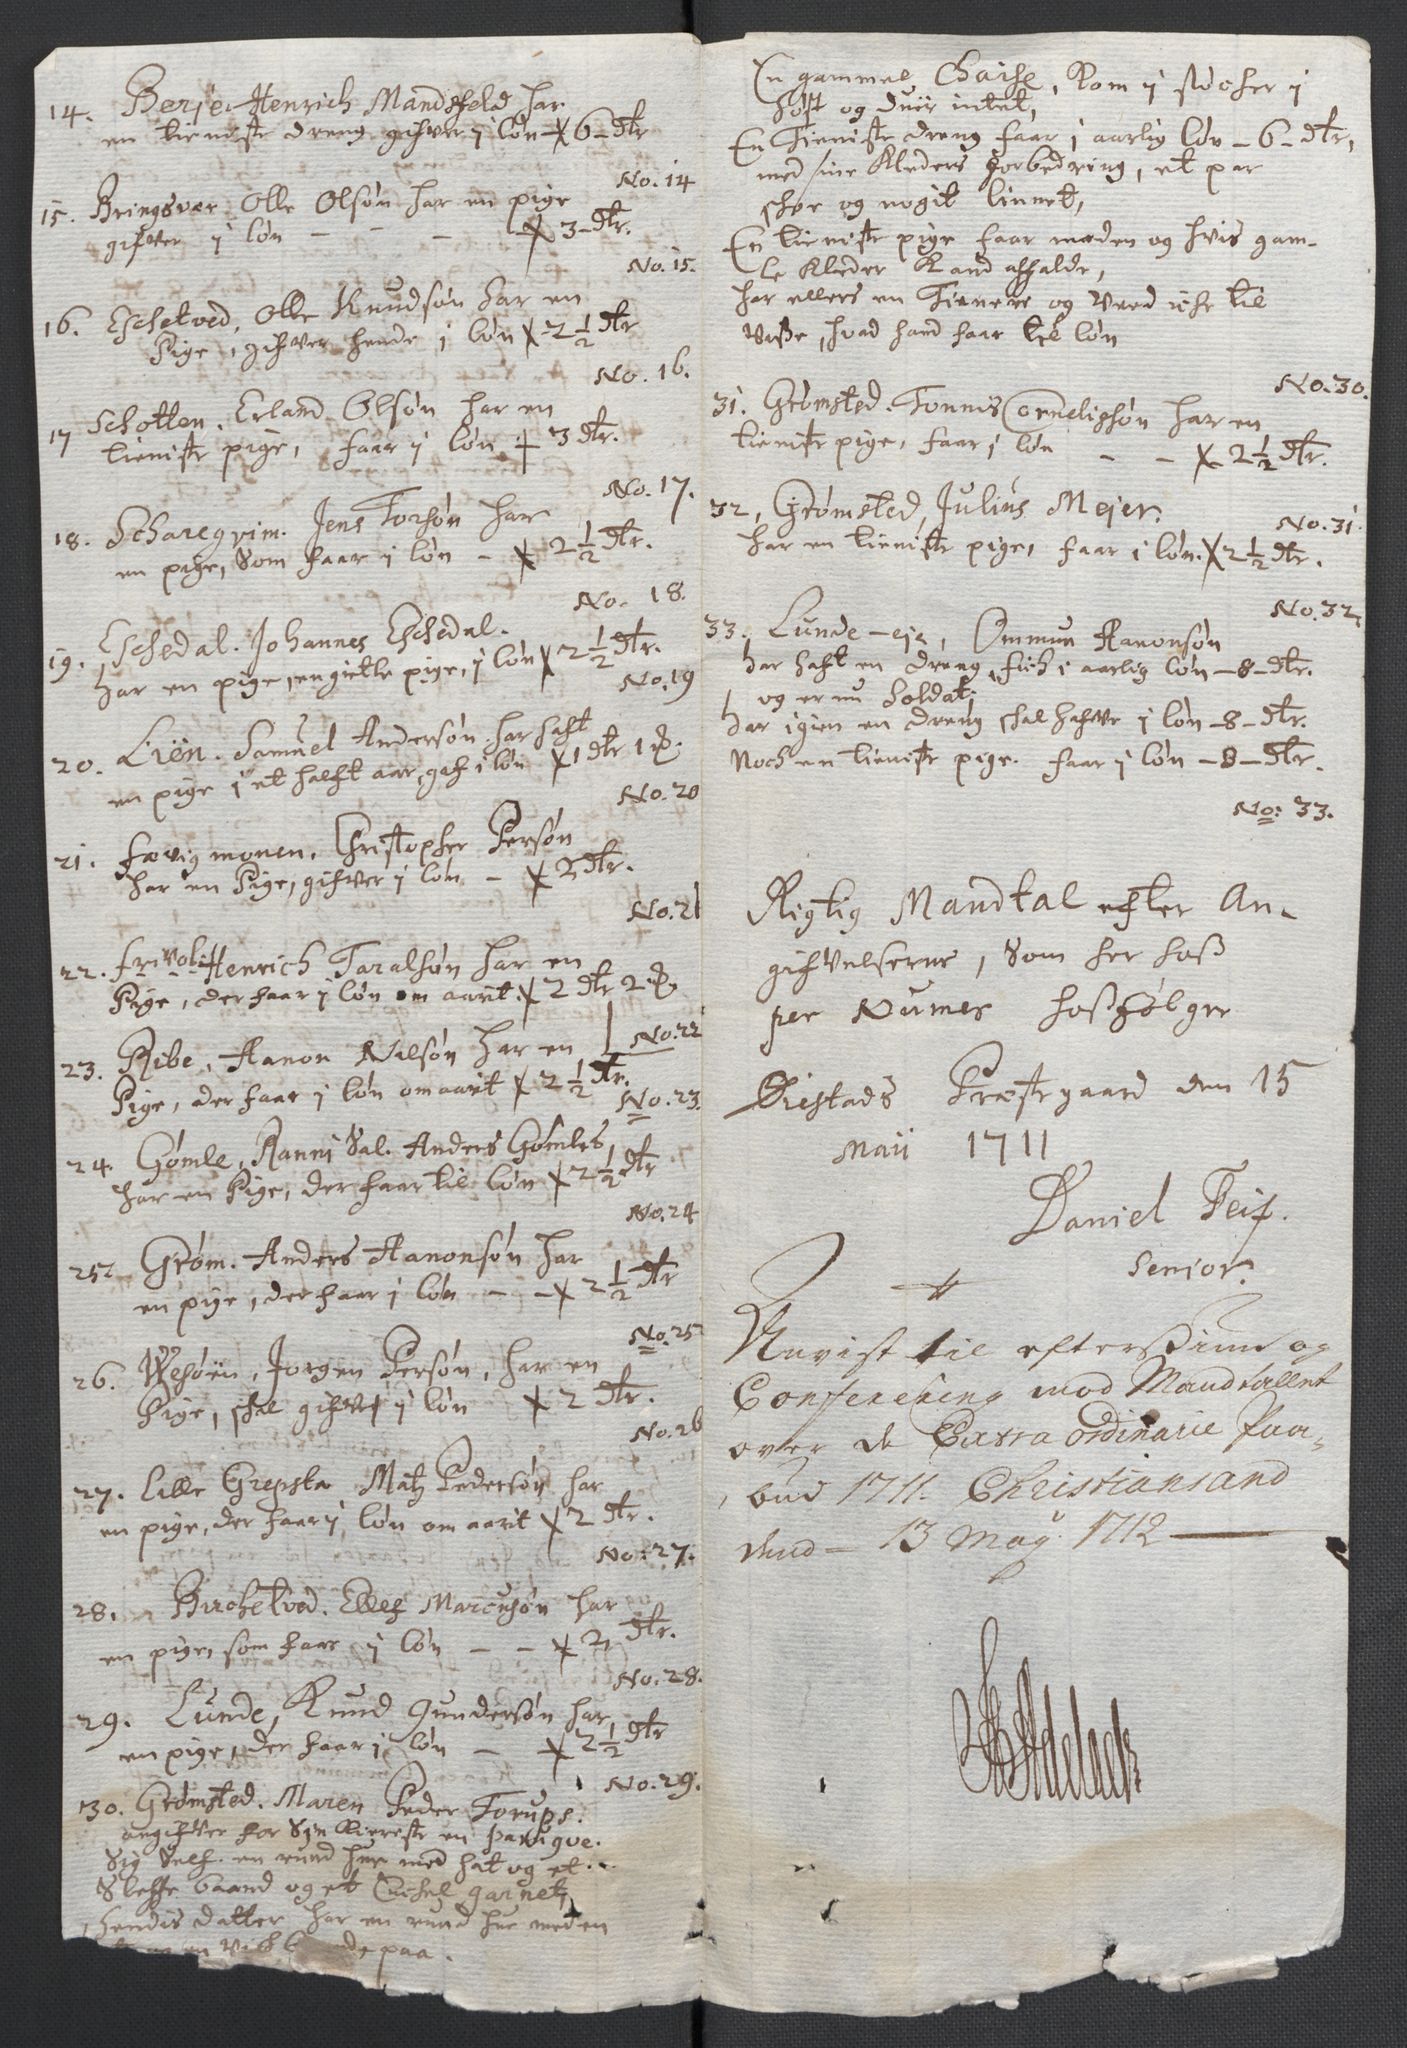 14. Berje. Henrich Mandsfeld har
en tieniste dreng gifver i løn 6 dtr
No. 14
15. Bringsver Olle Olsøn har en pige
gifver i løn - - - 3 dtr.
No. 15.
16. Eschetved, Olle Knudsøn har en
Pige, gifver hende i løn 2 1/2 dtr
No. 16.
17 Schotten. Erland Olsøn har en
tieniste pige, faar i løn 3 dtr.
No. 17.
18. Scharegvim. Jens Torsøn har
en pige, Som faar i løn - 2 1/2 dtr.
No. 18.
19. Eschedal. Johannes Eschedal.
har en pige, en giette pige, i løn 2 1/2 dtr.
No. 19
20. Liën. Samuel Andersøn har haft
en pige i et halft aar, gaf i løn 1 dtr 1
No. 20
21. fævig monen. Christopher Persøn
har en Pige, gifver i løn - 2 dtr.
No. 21
22. frivol: Henrich Taralsøn har en
Pige, der faar i løn om aarit 2 dtr 2
No. 22
23. Ribe, Aanon Nilsøn har en
Pige, der faar i løn om aarit 2 1/2 dtr.
No. 23.
24. Gømle, Ranni Sal. Anders Gømles,
har en Pige, der faar til løn 2 1/2 dtr
No. 24
25. Grøm. Anders Aanonsøn har
en pige, der faar i løn - - 2 1/2 dtr
No. 25
26. Wesøën, Jorgen Persøn, har en
Pige, skal gifve i løn 2 dtr.
No. 26
27. Lille Grepsta Matz Pedersøn har
en pige, der faar i løn om aarit 2 dtr.
No. 27.
28. Birchetved. Ellef Marcusøn har
en pige, som faar i løn - - 2 dtr.
No. 28.
29. Lunde, Knud Gundersøn har,
en pige, der faar i løn - 2 1/2 dtr
No. 29.
30. Grømsted. Maren Peder Torups.
angifver for Syn Kiereste en paruqve.
Sig Self. en rund hue med hat og et
Slesse baand og et garnet,
hendis datter har en rund hue med en
paa.
En gammel Chaise, Kom i støcher i
høst og duër intet,
En Tieniste dreng faar i aarlig løn - 6 - dtr,
med sine Kleders forbedring, et par
schoe og nogit linnet,
En tieniste pige faar maden og hvis gam-
le Kleder Kand affalde,
har ellers en Tienere og veed iche til
visse, hvad hand faar til løn
No. 30.
31. Grømsted. Tonnis Cornelissøn har en
tieniste pige, faar i løn - - 2 1/2 dtr.
No. 31
32, Grømsted, Julius Mejer.
har en tieniste pige, faar i løn. 2 1/2 dtr.
No. 32,
33. Lunde-eje, Ommun Aanonsøn
har haft en dreng, fich i aarlig løn - 8 - dtr.
og er nu Soldat,
har igien en dreng skal hafve i løn - 8 - dtr.
Noch en tieniste pige. faar i løn - 8 - dtr.
No: 33.
Rigtig Mandtal efter An-
gifvelserne, Som her hoss
per Numer hossfølger
Øiestads Præstegaard den 15
Maij 1711
Daniel Teif.
Senior.
Unvist til eftersiun og
Conferering mod Mandtallet
over de Extra ordinarie Paa-
bud 1711. Christiansand
dend - 13 May 1712